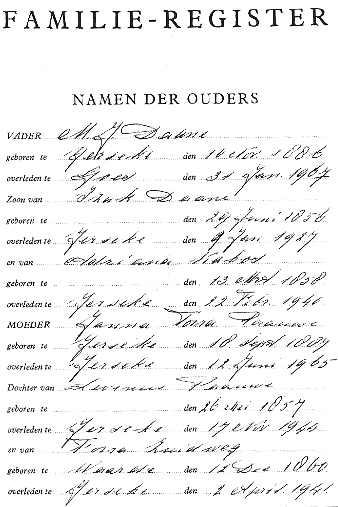 FAMILIE-REGISTER
NAMEN DER OUDERS
VADER M. J. Daane
geboren te Yerseke den 14 Nov. 1886
overleden te Goes den 31 Jan. 1967
Zoon van Izak Daane
geboren te den 29 Juni 1856
overleden te Yerseke den 9 Jan 1927
en van Adriana
geboren te den 13 1858
overleden te Yerseke den 22 Febr. 1940
MOEDER Janna Paauwe
geboren te Yerseke den 18 Sept 1887
overleden te Yerseke den 12 Juni 1965
Dochter van Levenus Paauwe
geboren te den 26 Mei 1857
overleden te Yerseke den 17 Nov 1944
en van Zuidweg
geboren te Waarde den Dec 1860
overleden te Yerseke den 2 April 1941